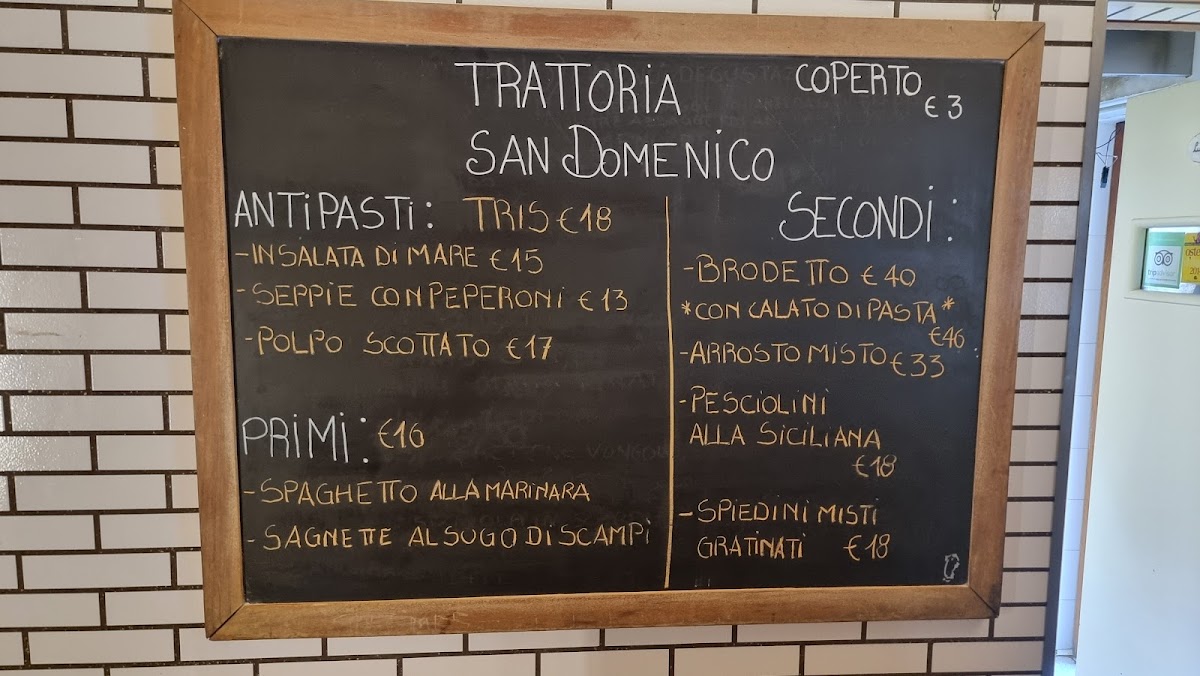 TRATTORIA
SAN DOMENICO
COPERTO
€ 3
ANTIPASTI: TRIS €18
-INSALATA DI MARE €15
-SEPPIE CON PEPERONI €13
-POLPO SCOTTATO €17
PRIMI: €16
-SPAGHETTO ALLA MARINARA
-SAGNETTE AL SUGO DI SCAMPI
SECONDI:
-BRODETTO €40
*CON CALATO DI PASTA*
€46
-ARROSTO MISTO €33
-PESCIOLINI
ALLA SICILIANA
€18
-SPIEDINI MISTI
GRATINATI €18